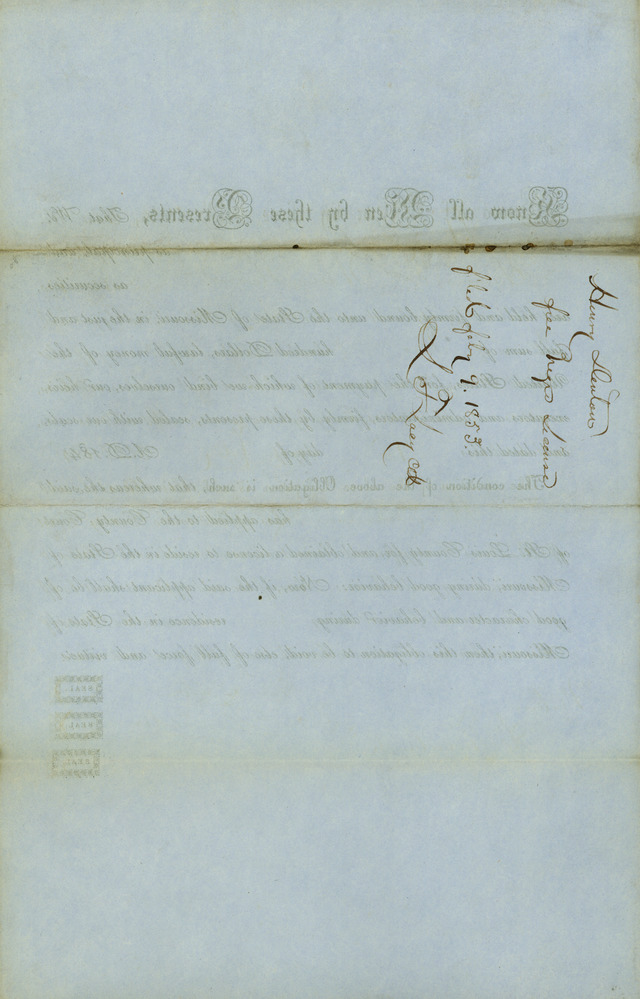 Henry Denton
free Negro License
filed feby 9. 1853.
Know all Men by these Presents, That We,
as principal and
as securities
held and firmly bound unto the State of Missouri, in the just and
sum of hundred Dollars, lawful money of the
the payment of which we bind ourselves, our heirs
executors and administrators, firmly by these presents, sealed with our seals
dated this day of A. D. 184
The condition of the above Obligation is such, that whereas the said
has applied to the County Court
of St. Louis County for and obtained a license to reside in the State of
Missouri, during good behavior: Now, if the said applicant shall be of
good character and behavior during residence in the State of
Missouri, then this obligation to be void, else of full force and virtue.
SEAL.
SEAL.
SEAL.